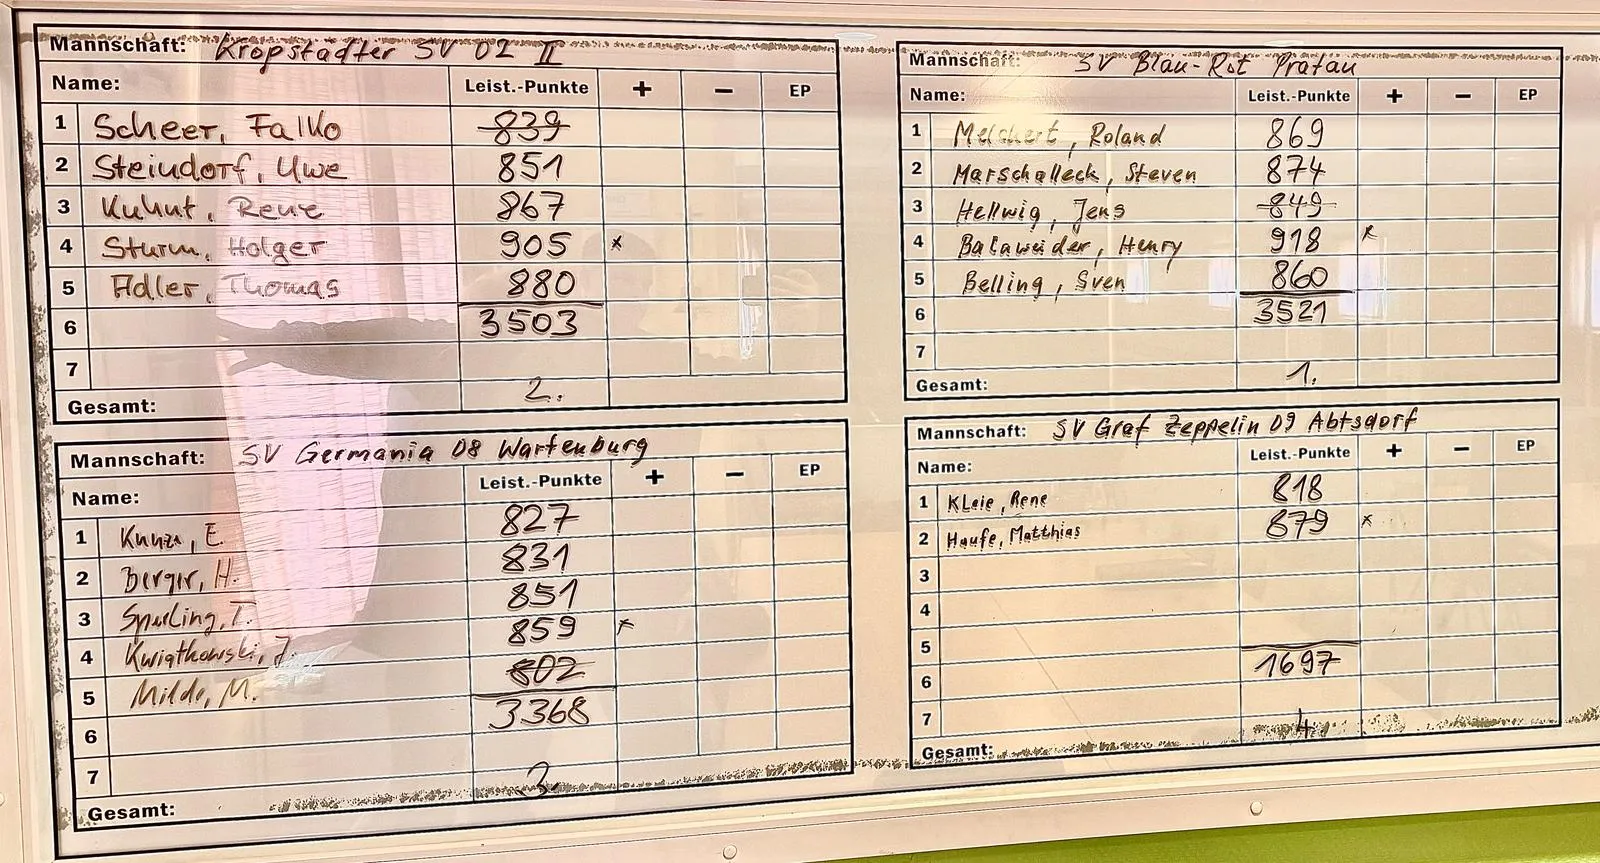 Mannschaft: Kropstädter SV 02 II
Name: Leist.-Punkte + − EP
1 Scheer, Falko 839
2 Steindorf, Uwe 851
3 Kuhnt, Rene 867
4 Sturm, Holger 905 x
5 Adler, Thomas 880
6 3503
7
2.
Gesamt:
Mannschaft: SV Blau-Rot Pratau
Name: Leist.-Punkte + − EP
1 Melchert, Roland 869
2 Marschalleck, Steven 874
3 Hellwig, Jens 849
4 Balaweider, Henry 918 x
5 Belling, Sven 860
6 3521
7
Gesamt: 1.
Mannschaft: SV Germania 08 Wartenburg
Name: Leist.-Punkte + − EP
1 Kunze, E. 827
2 Berger, H. 831
3 Sperling, T. 851
4 Kwiatkowski, J. 859 x
5 Milde, M. 802
6 3368
7
3.
Gesamt:
Mannschaft: SV Graf Zeppelin 09 Abtsdorf
Name: Leist.-Punkte + − EP
1 Kleie, Rene 818
2 Haufe, Matthias 879 x
3
4
5
6 1697
7
4.
Gesamt: